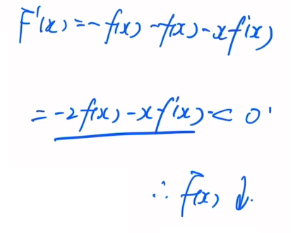 F'(x)=-f(x)-f(x)-xf'(x)
=-2f(x)-xf'(x)<0
∴ F(x)↓.